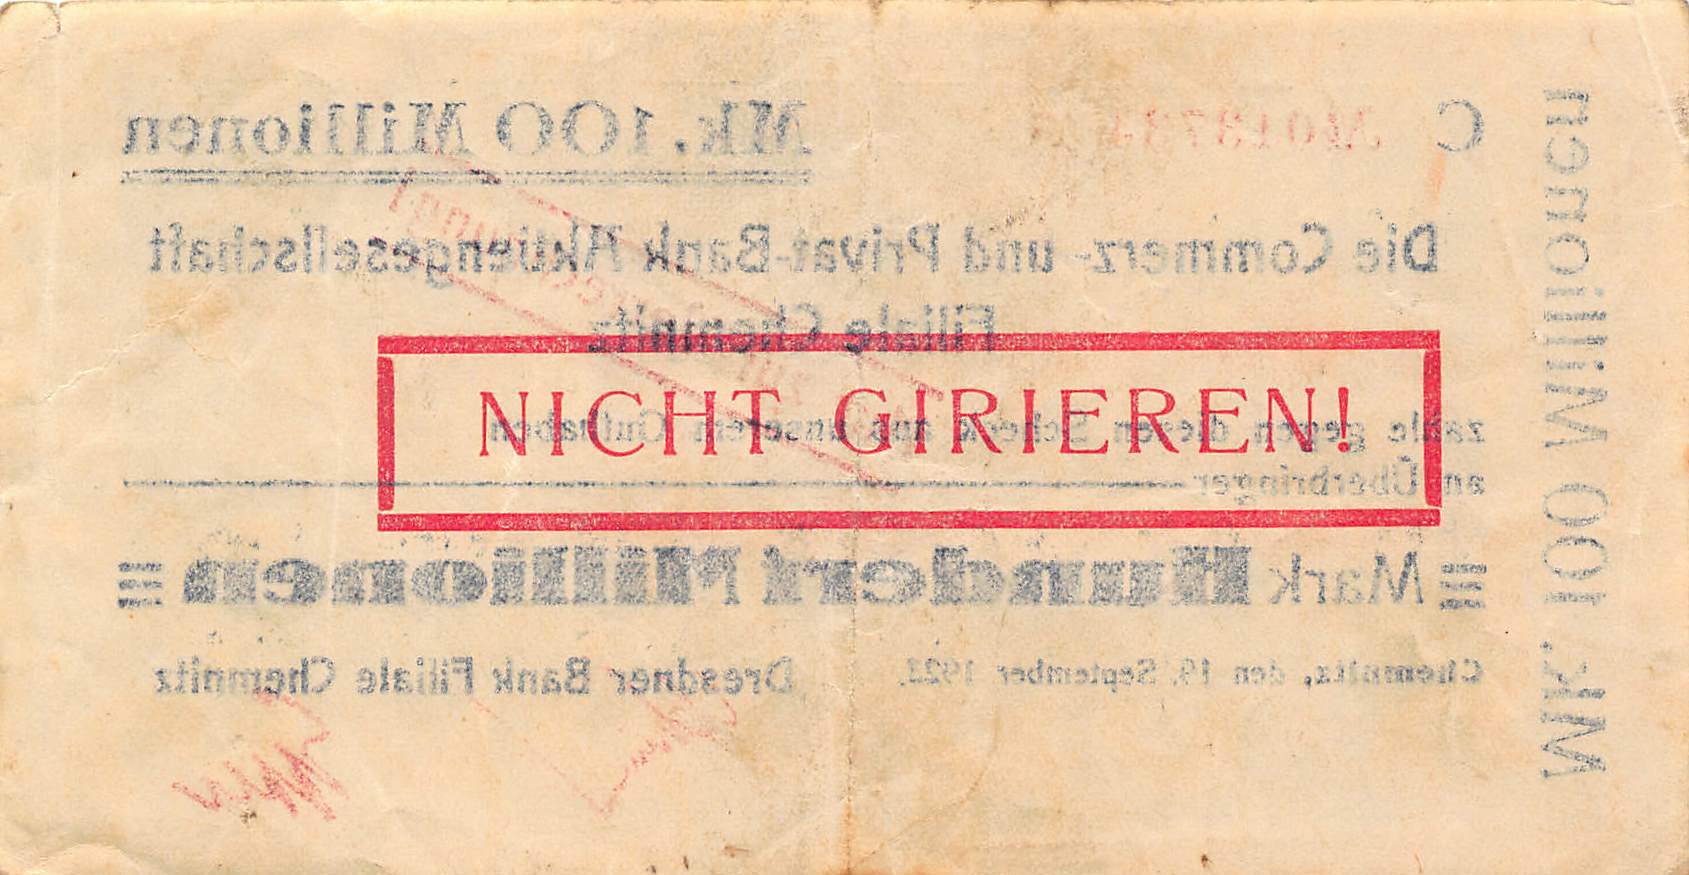 C № 018734 Mk. 100 Millionen
Die Commerz- und Privat-Bank Aktiengesellschaft
Filiale Chemnitz
NICHT GIRIEREN!
zahle gegen diesen Scheck aus unserem Guthaben
an Überbringer
Mark Hundert Millionen
Chemnitz, den 19. September 1923. Dresdner Bank Filiale Chemnitz
Mk. 100 Millionen